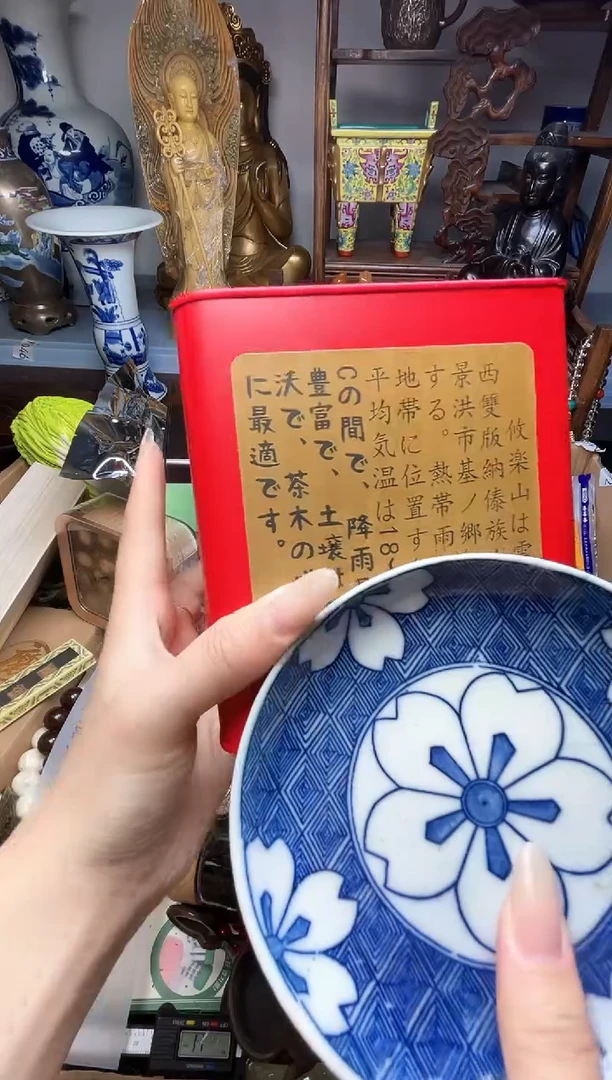 攸楽山は雲
西雙版納傣族
景洪市基ノ郷
する。熱帯雨
地帯に位置す
平均気温は18~
Cの間で、降雨
豊富で、土壌
沃で、茶木の
に最適です。